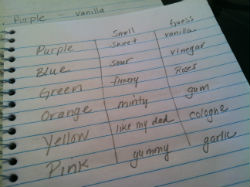 Purple - vanilla
Smell Guess
Purple sweet vanilla
Blue sour vinegar
Green flowery Roses
Orange minty gum
Yellow like my dad cologne
Pink gummy garlic